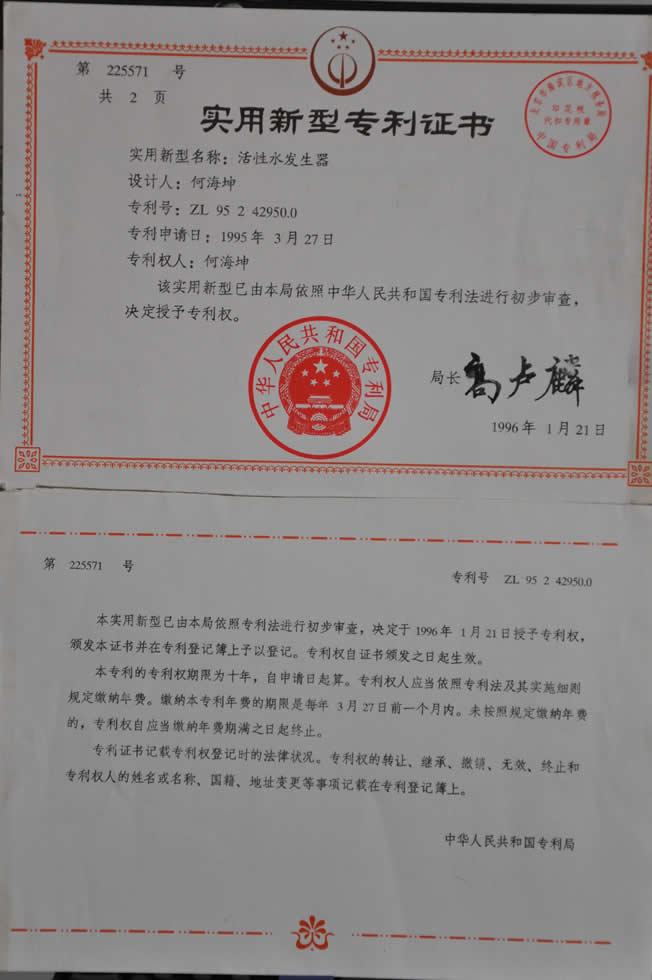 第 225571 号
共 2 页
实用新型专利证书
北京市海淀区地方税务局
印花税
代扣专用章
中国专利局
实用新型名称：活性水发生器
设计人：何海坤
专利号：ZL 95 2 42950.0
专利申请日：1995年 3月27日
专利权人：何海坤
该实用新型已由本局依照中华人民共和国专利法进行初步审查，
决定授予专利权。
中华人民共和国专利局
局长 高卢麟
1996年 1月21日
第 225571 号
专利号 ZL 95 2 42950.0
本实用新型已由本局依照专利法进行初步审查，决定于1996年 1月21日授予专利权，
颁发本证书并在专利登记簿上予以登记。专利权自证书颁发之日起生效。
本专利的专利权期限为十年，自申请日起算。专利权人应当依照专利法及其实施细则
规定缴纳年费。缴纳本专利年费的期限是每年 3月27日前一个月内。未按照规定缴纳年费
的，专利权自应当缴纳年费期满之日起终止。
专利证书记载专利权登记时的法律状况。专利权的转让、继承、撤销、无效、终止和
专利权人的姓名或名称、国籍、地址变更等事项记载在专利登记簿上。
中华人民共和国专利局